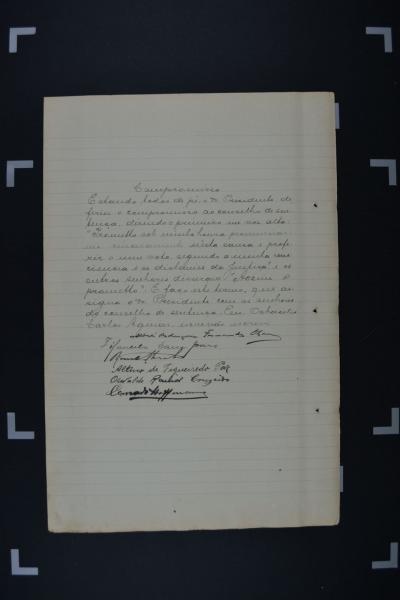 Compromisso
Estando todos de pé, o Dr. Presidente, de
ferio o compromisso ao conselho de sen
tença, dizendo o primeiro em voz alta:
"Prometto sob minha honra pronunciar-
me sinceramente nesta causa e profe-
rir o meu voto, segundo a minha cons
ciencia e os dictames da Justiça" e os
outros senhores disseram: "Assim o
prometto". E faço este termo, que as-
signa o Dr. Presidente com os senhores
do conselho de sentença. Eu,
Carlos Aguiar, escrivão
Fernandes
Altino de Figueiredo Paz
Oswaldo Cruzeiro
Conrado Hoffmann